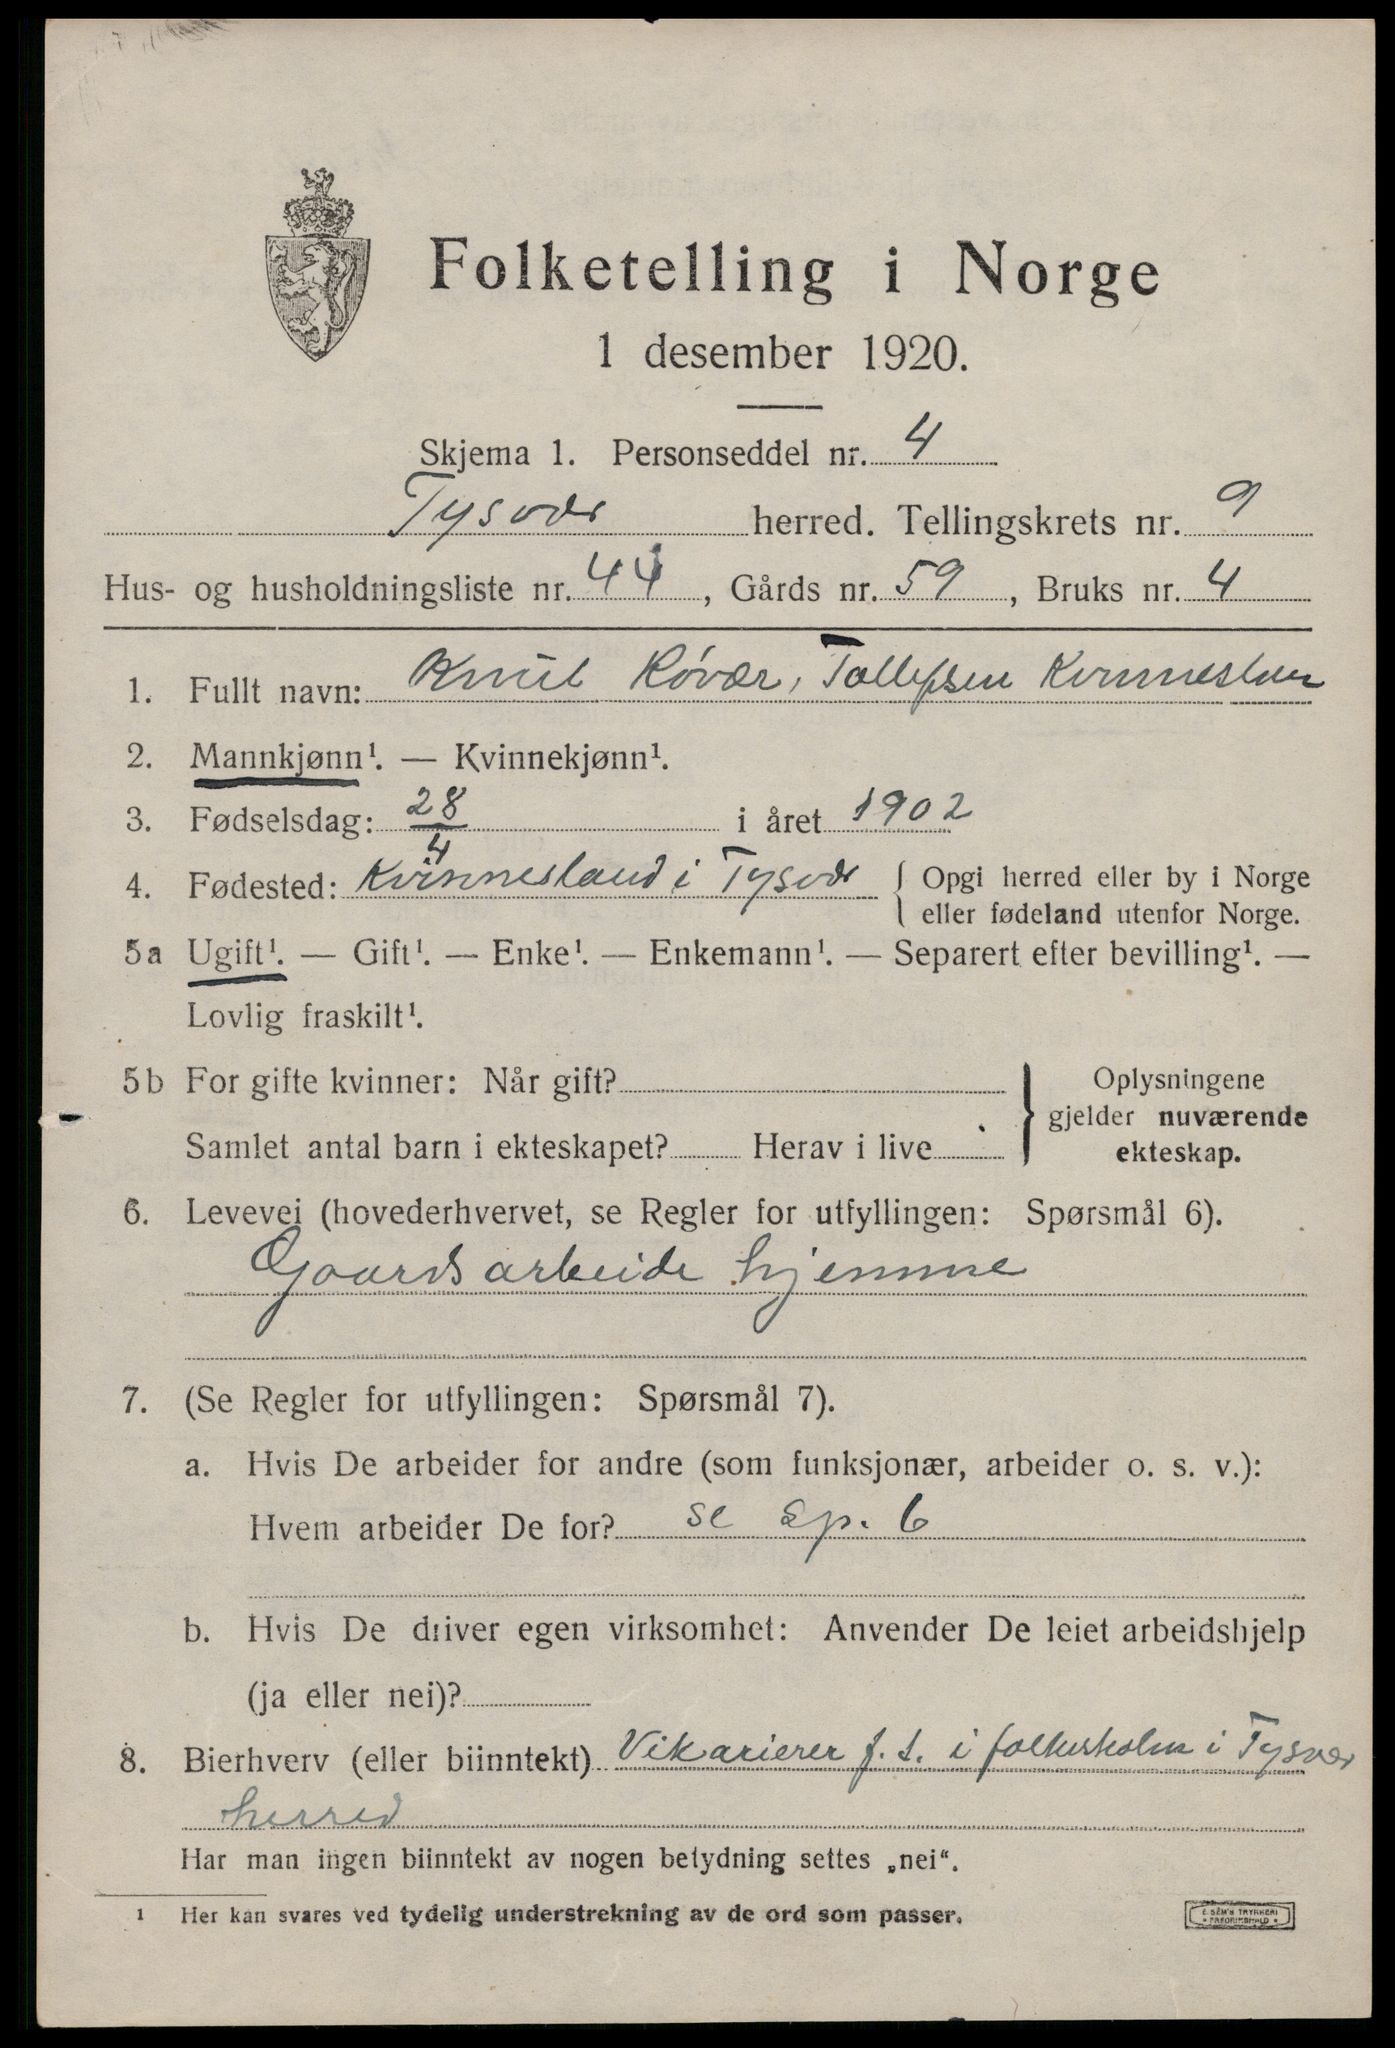 Folketelling i Norge
1 desember 1920.
Skjema 1. Personseddel nr. 4
Tysvær herred. Tellingskrets nr. 9
Hus- og husholdningsliste nr. 44, Gårds nr. 59, Bruks nr. 4
1. Fullt navn: Knut Røvær, Tollefsen Kvinnesland
2. Mannkjønn¹. — Kvinnekjønn¹.
3. Fødselsdag: 28/4 i året 1902
4. Fødested: Kvinnesland i Tysvær { Opgi herred eller by i Norge
eller fødeland utenfor Norge.
5a Ugift¹. — Gift¹. — Enke¹. — Enkemann¹. — Separert efter bevilling¹. —
Lovlig fraskilt¹.
5b For gifte kvinner: Når gift?
Samlet antal barn i ekteskapet? Herav i live
} Oplysningene
gjelder nuværende
ekteskap.
6. Levevei (hovederhvervet, se Regler for utfyllingen: Spørsmål 6).
Gaardsarbeide hjemme
7. (Se Regler for utfyllingen: Spørsmål 7).
a. Hvis De arbeider for andre (som funksjonær, arbeider o. s. v.):
Hvem arbeider De for? se sp. 6
b. Hvis De driver egen virksomhet: Anvender De leiet arbeidshjelp
(ja eller nei)?
8. Bierhverv (eller biinntekt) Vikarierer f. t. i folkeskolen i Tysvær
herred
Har man ingen biinntekt av nogen betydning settes „nei“.
¹ Her kan svares ved tydelig understrekning av de ord som passer.
E. SEM'S TRYKKERI
* FREDRIKSHALD *